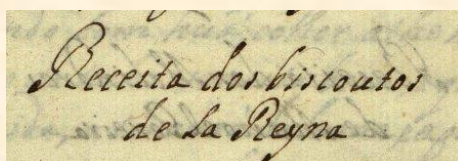 Receita dos biscoutos
de La Reyna